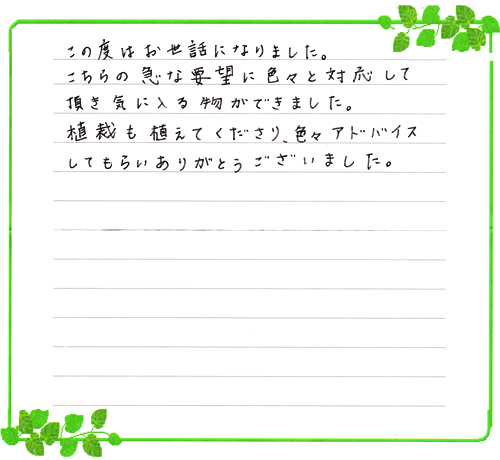 この度はお世話になりました。
こちらの急な要望に色々と対応して
頂き気に入る物ができました。
植裁も植えてくださり、色々アドバイス
してもらいありがとうございました。